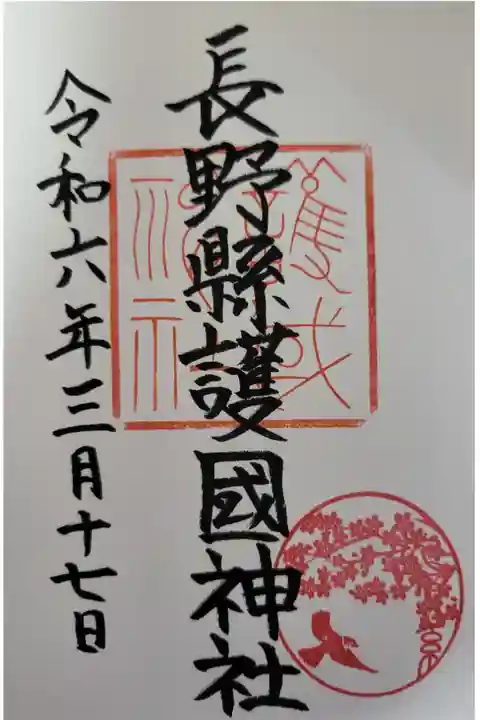 長野縣護國神社
令和六年三月十七日